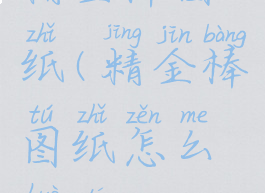 zhǐ jīng jīn bàng
纸(精金棒
tú zhǐ zěn me
图纸怎么